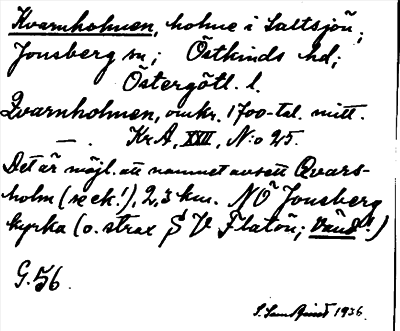 Kvarnholmen, holme i Saltsjön;
Jonsberg sn; Östkinds hd;
Östergötl. l.
Qvarnholmen, omkr. 1700-tal. mitt.
—. KrA, XXII, N:o 25.
Det är möjl. att namnet avsett Qvars-
holm (se ek!), 2,3 km. NO Jonsberg
kyrka (o. strax SV Flatön;
G. 56.
1936.